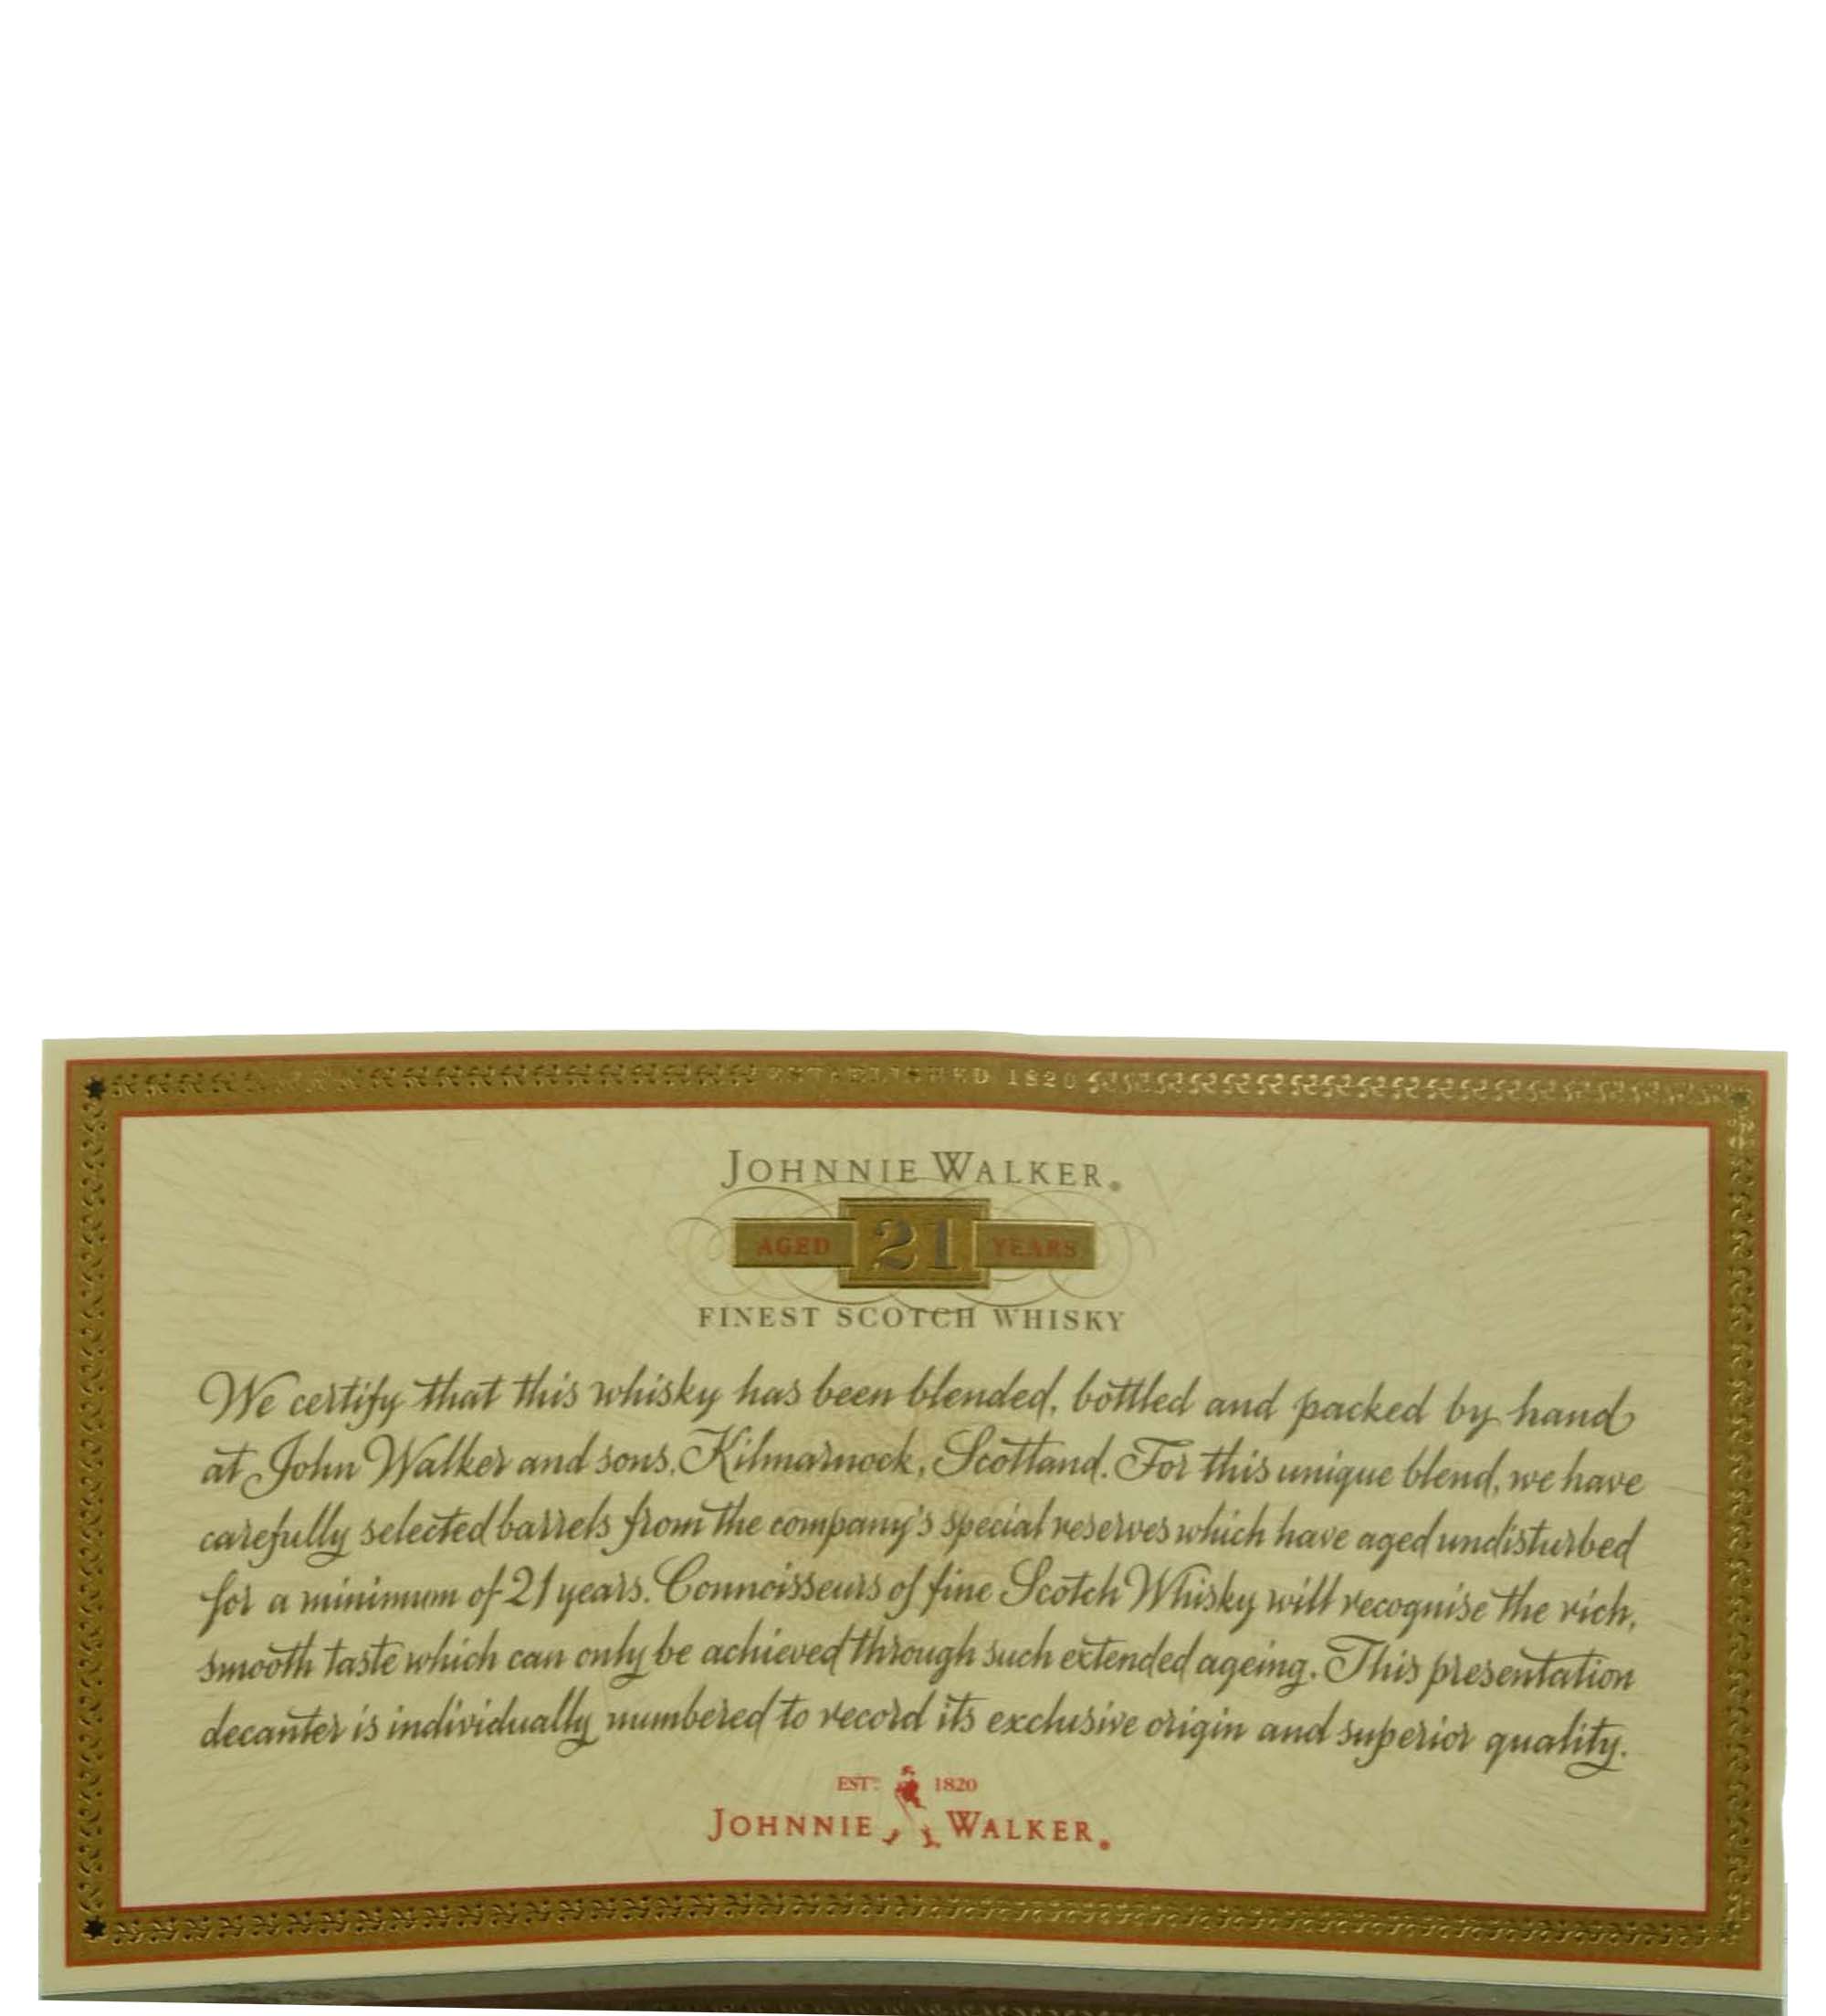 ESTABLISHED 1820
JOHNNIE WALKER®
AGED 21 YEARS
FINEST SCOTCH WHISKY
We certify that this whisky has been blended, bottled and packed by hand
at John Walker and sons, Kilmarnock, Scotland. For this unique blend, we have
carefully selected barrels from the company's special reserves which have aged undisturbed
for a minimum of 21 years. Connoisseurs of fine Scotch Whisky will recognise the rich,
smooth taste which can only be achieved through such extended ageing. This presentation
decanter is individually numbered to record its exclusive origin and superior quality.
EST. 1820
JOHNNIE WALKER®